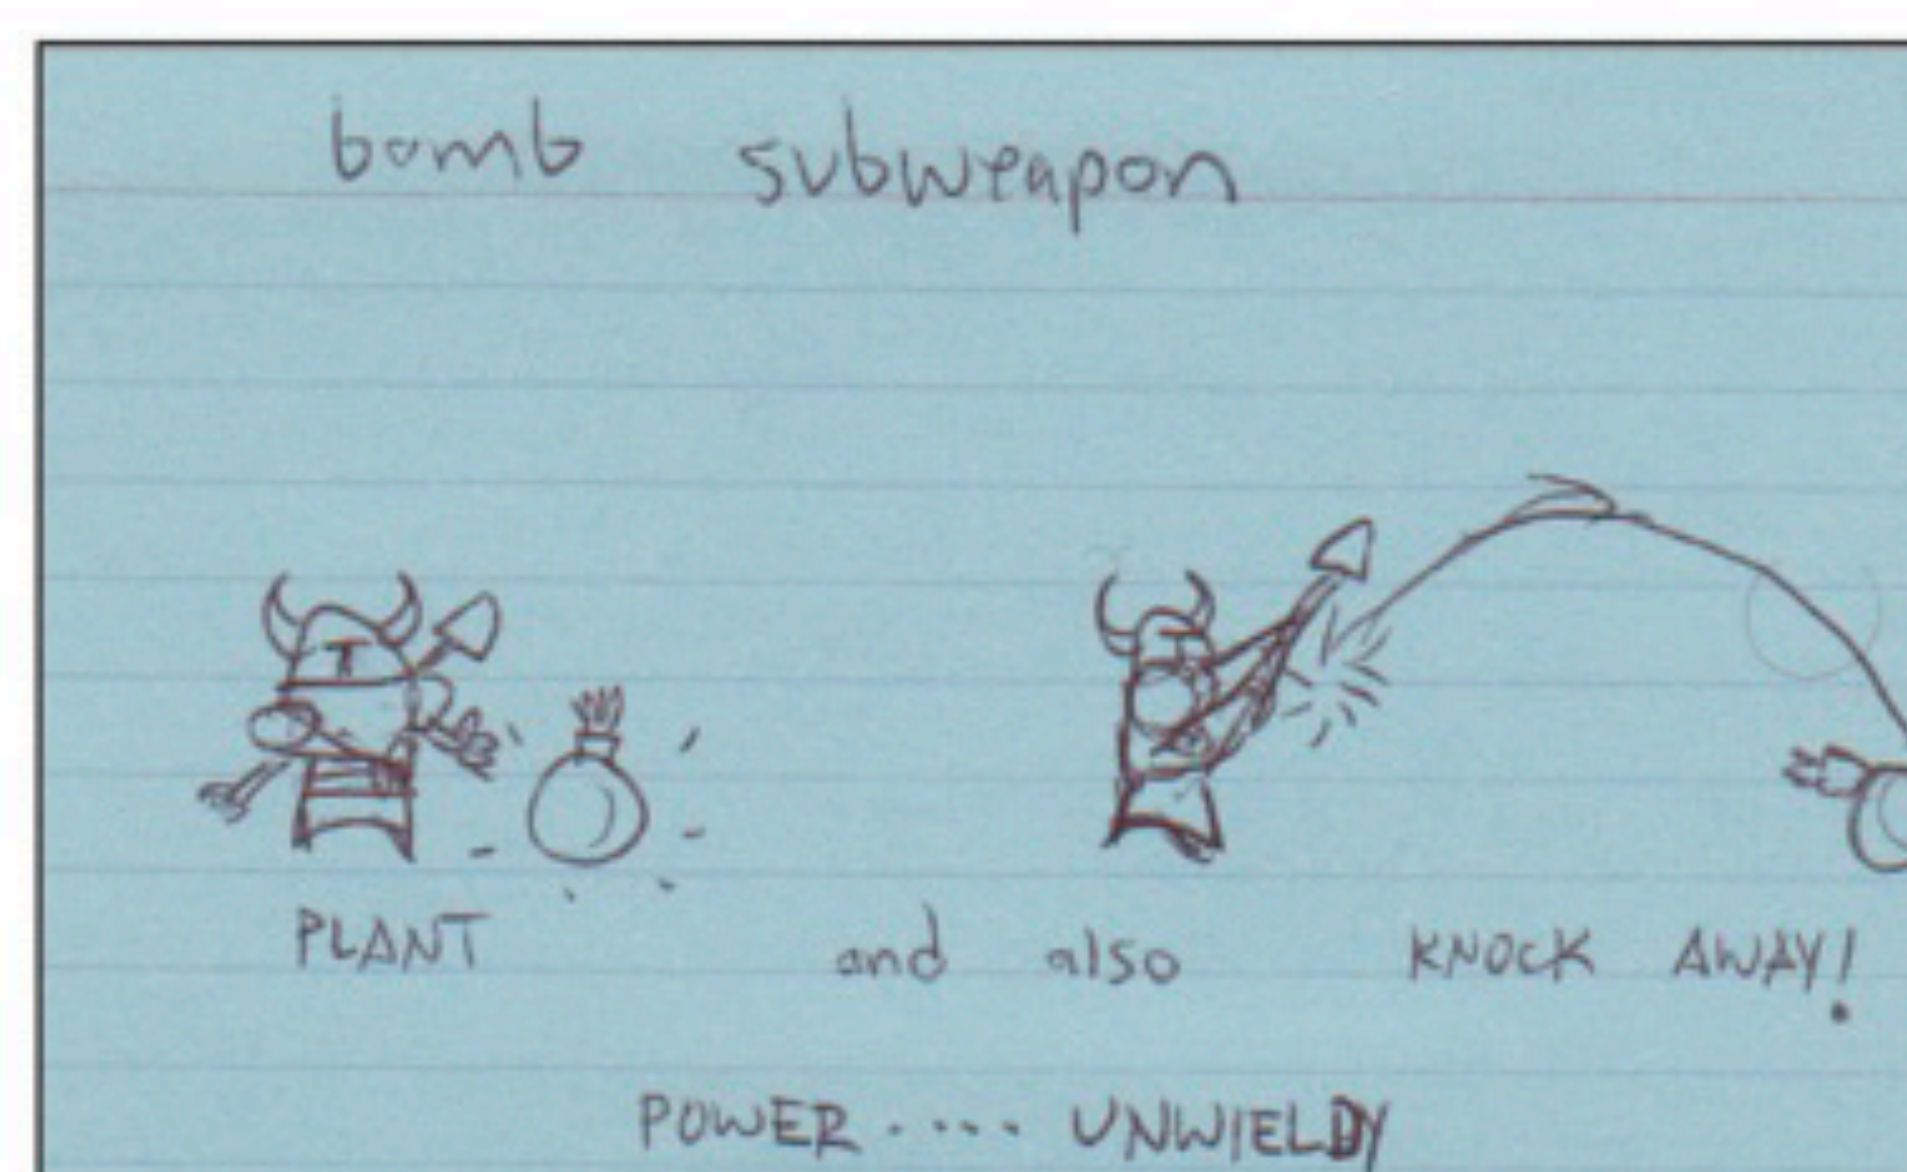 bomb subweapon
PLANT and also KNOCK AWAY!
POWER ..... UNWIELDY